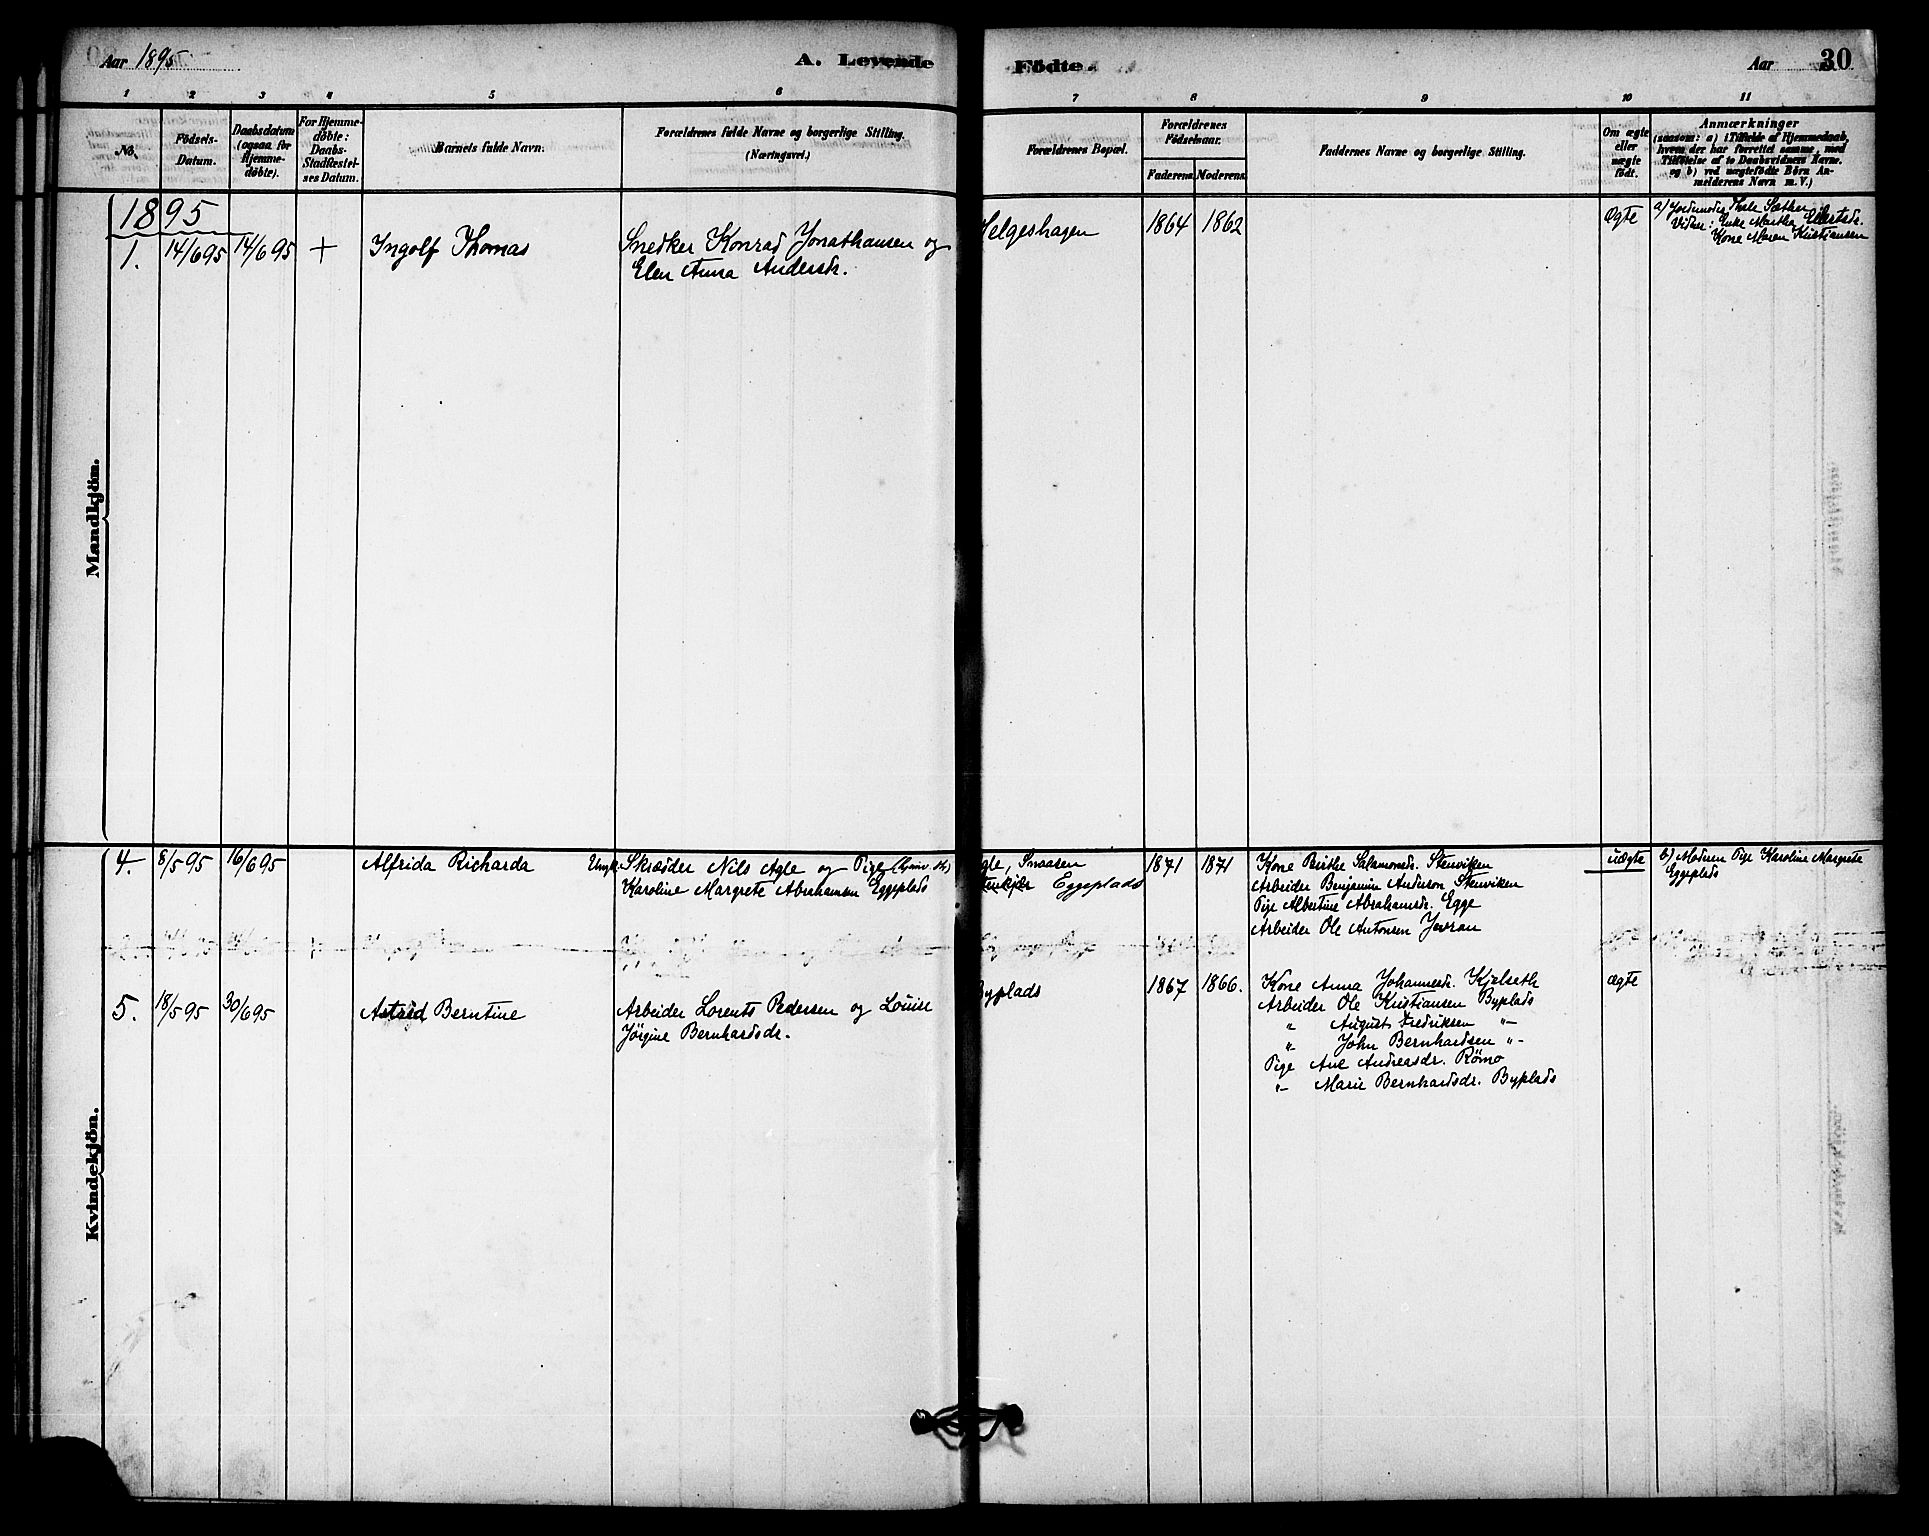 Aar 1895
A. Levende
Födte.
Aar
30
1 2 3 4 5 6 7 8 9 10 11
No.
Födsels-
Datum.
Daabsdatum
(ogsaa for
Hjemme-
døbte).
For Hjemme-
døbte:
Daabs-
Stadfæstel-
ses Datum.
Barnets fulde Navn.
Forældrenes fulde Navne og borgerlige Stilling.
(Næringsvei.)
Forældrenes Bopæl.
Forældrenes
Födselsaar.
Faderens Moderens
Faddernes Navne og borgerlige Stilling.
Om ægte
eller
uægte
födt.
Anmærkninger
(saasom: a) i Tilfælde af Hjemmedaab,
hvem der har forrettet samme, med
Tilföielse af to Daabsvidners Navne,
og b) ved uægtefödte Börn An-
melderens Navn m. V.)
Mandkjön.
1895
1. 14/6 95 14/6 95 + Ingolf Thomas
Snedker Konrad Jonathansen og
Elen Anna Andersdr.
Helgeshagen
1864 1862
Ægte
a) Jordemoder Thale Sæther
Vidner: Enke Martha Ellertsdr.
Kone Maren Kristiansen
Kvindekjön.
4. 8/5 95 16/6 95 Alfrida Richarda
Ungk. Skrædder Nils Agle og Pige
Karoline Margrete Abrahamsen Eggeplads
Agle, Snaasen
Stenkjær Eggeplads
1871 1871
Kone Birthe Salamonsdr. Stenviken
Arbeider Benjamin Anderson Stenviken
Pige Albertine Abrahamsdr. Egge
Arbeider Ole Antonsen
uægte
b) Moderen Pige Karoline Margrete
Eggeplads
5. 18/5 95 30/6 95 Astrid Berntine
Arbeider Lorents Pedersen og Louise
Jörgine Bernhardsdr.
Byplads
1867 1866.
Kone Anna Johannesdr. Kjelseth
Arbeider Ole Kristiansen Byplads
" August Fredriksen "-
"- John Bernhardsen "-
Pige Ane Andreasdr. Römo
"- Marie Bernhardsdr. Byplads
ægte